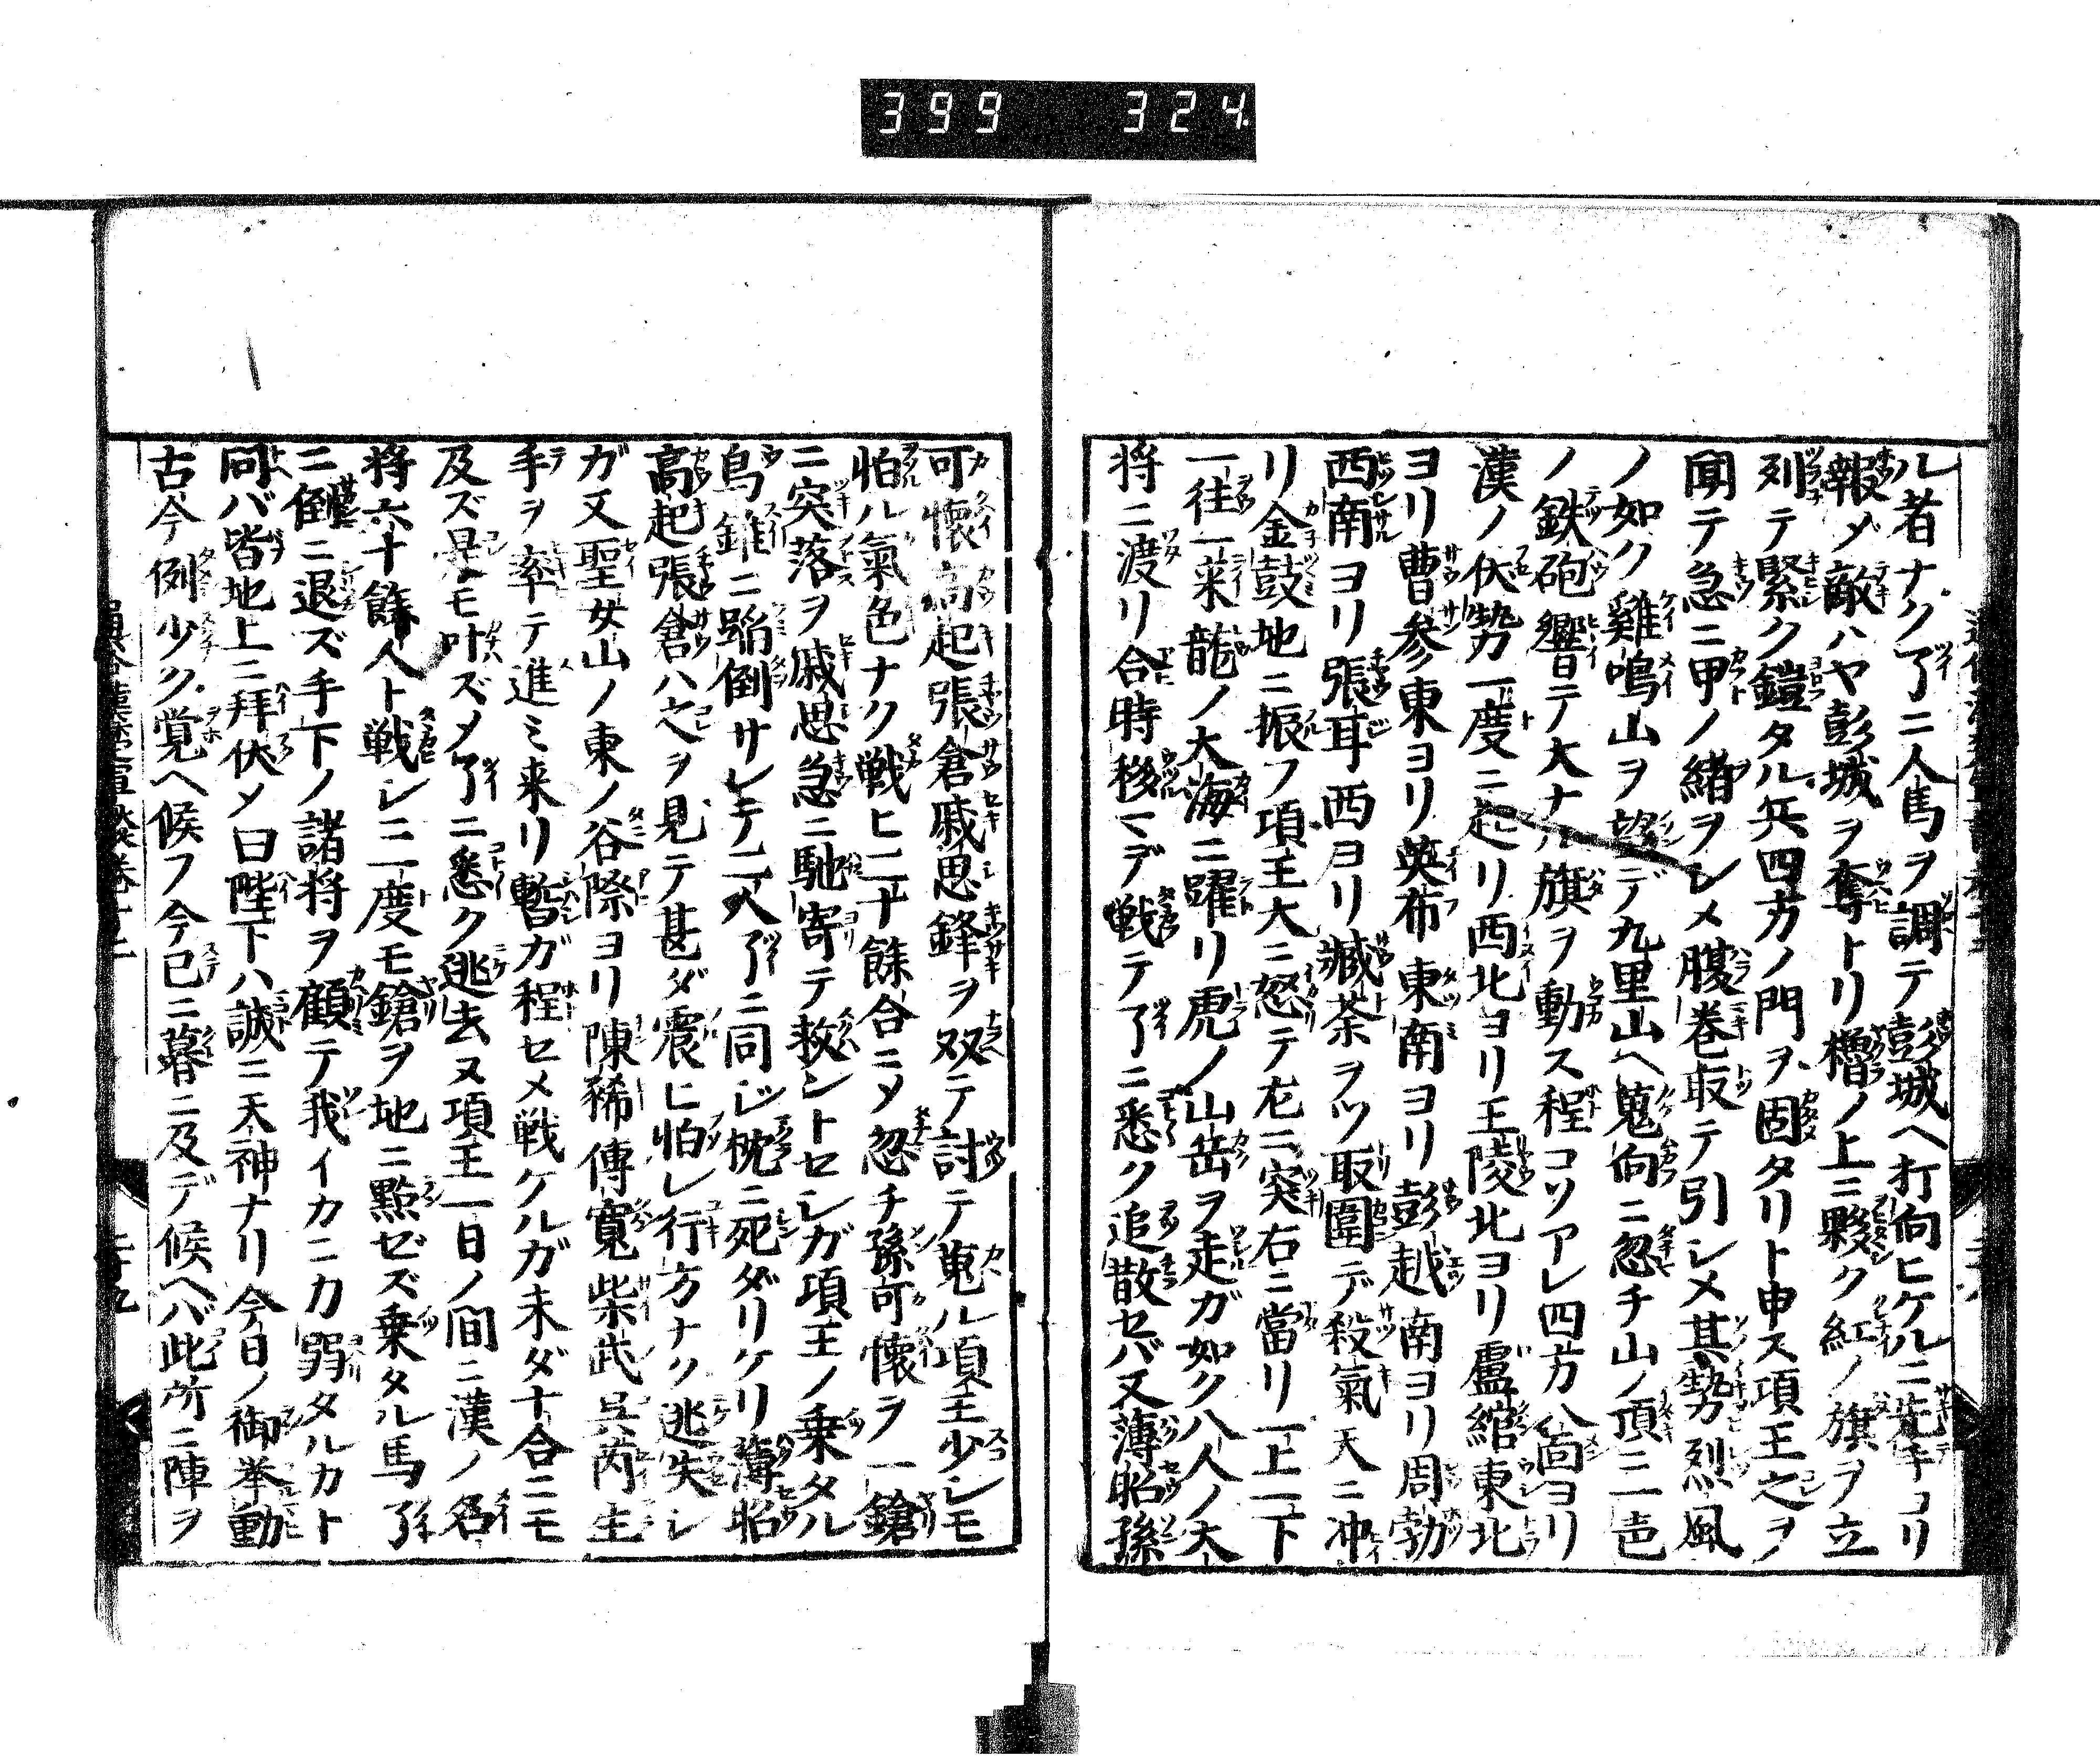 399 324
ル者ナク了ニ人馬ヲ調テ彭城ヘ打向ヒケルニ先手ヨリ
報メ敵ハヤ彭城ヲ奪トリ櫓ノ上ニ夥ク紅ノ旗ヲ立
列テ緊ク鎧タル兵四方ノ門ヲ固タリト申ス項王之ヲ
聞テ急ニ甲ノ緒ヲシメ腹巻取テ引シメ其勢烈風
ノ如ク雞鳴山ヲ望デ九里山ヘ蒐向ニ忽チ山ノ頂ニ一声
ノ鉄砲響テ大ナル旗ヲ動ス程コソアレ四方八面ヨリ
漢ノ伏勢一度ニ起リ西北ヨリ王陵北ヨリ盧綰東北
ヨリ曹参東ヨリ英布東南ヨリ彭越南ヨリ周勃
西南ヨリ張耳西ヨリ臧荼ヲツ取圍デ殺氣天ニ冲
リ金鼓地ニ振フ項王大ニ怒テ左ニ突右ニ當リ一上一下
一往一来龍ノ大海ニ躍リ虎ノ山岳ヲ走ガ如ク八人ノ大
将ニ渡リ合時移マデ戦テ了ニ悉ク追散セバ又薄昭孫
可懐高起張倉戚思鋒ヲ双テ討テ蒐ル項王少シモ
怕ル氣色ナク戦ヒ二十餘合ニメ忽チ孫可懐ヲ一鎗
ニ突落ヲ戚思急ニ馳寄テ救ントセシガ項王ノ乗タル
烏錐ニ蹈倒サレテ二人了ニ同ジ枕ニ死ダリケリ薄昭
高起張倉ハ之ヲ見テ甚ダ震ヒ怕レ行方ナク逃失シ
ガ又聖女山ノ東ノ谷際ヨリ陳豨傳寛柴武呉芮生
手ヲ率テ進ミ来リ暫ガ程セメ戦ケルガ未ダ十合ニモ
及ズ是モ叶ズメ了ニ悉ク逃去ヌ項王一日ノ間ニ漢ノ名
将六十餘人ト戦シニ一度モ鎗ヲ地ニ點ゼズ乗タル馬了
ニ倒ニ退ズ手下ノ諸将ヲ顧テ我イカニカ弱タルカト
問バ皆地上ニ拜伏メ曰陛下ハ誠ニ天神ナリ今日ノ御挙動
古今例少ク覚ヘ候フ今已ニ暮ニ及デ候ヘバ此所ニ陣ヲ